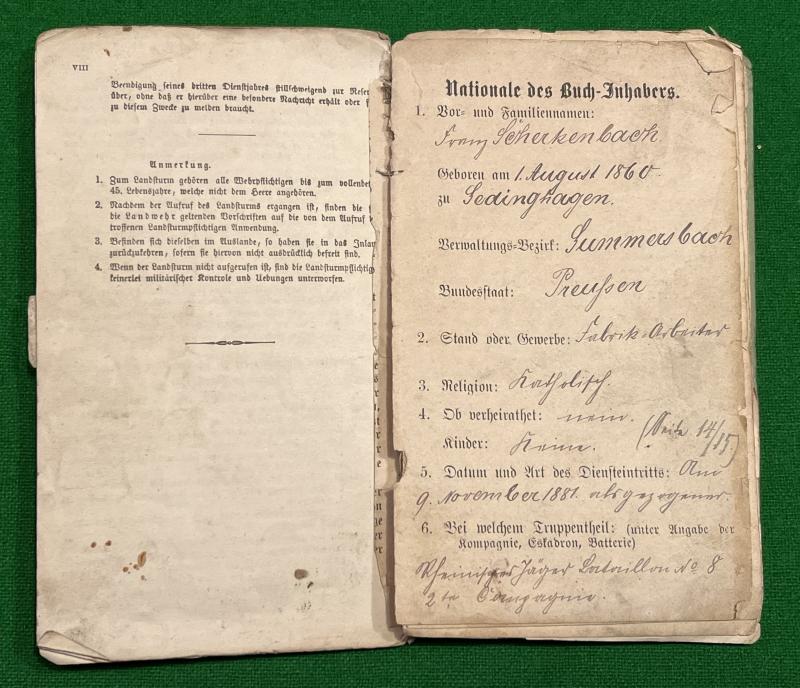 VIII
Beendigung seines dritten Dienstjahres stillschweigend zur Reser
über, ohne daß er hierüber eine besondere Nachricht erhält oder
zu diesem Zwecke zu melden braucht.
Anmerkung.
1. Zum Landsturm gehören alle Wehrpflichtigen bis zum vollendet
45. Lebensjahre, welche nicht dem Heere angehören.
2. Nachdem der Aufruf des Landsturms ergangen ist, finden die
die Landwehr geltenden Vorschriften auf die von dem Aufruf
troffenen Landsturmpflichtigen Anwendung.
3. Befinden sich dieselben im Auslande, so haben sie in das Inlan
zurückzukehren, sofern sie hiervon nicht ausdrücklich befreit sind.
4. Wenn der Landsturm nicht aufgerufen ist, sind die Landsturmpflichtig
keinerlei militärischer Kontrole und Uebungen unterworfen.
Nationale des Buch-Inhabers.
1. Vor- und Familiennamen:
Franz Scherkenbach
Geboren am 1. August 1860
zu Sedinghagen.
Verwaltungs-Bezirk: Gummersbach
Bundesstaat: Preußen
2. Stand oder Gewerbe: Fabrik-Arbeiter
3. Religion: Katholisch.
4. Ob verheirathet: nein.
Kinder: Keine. (Seite 14/15)
5. Datum und Art des Diensteintritts: Am
9. November 1881. als gezogener.
6. Bei welchem Truppentheil: (unter Angabe der
Kompagnie, Eskadron, Batterie)
Rheinisches Jäger Bataillon No 8
2te Compagnie.